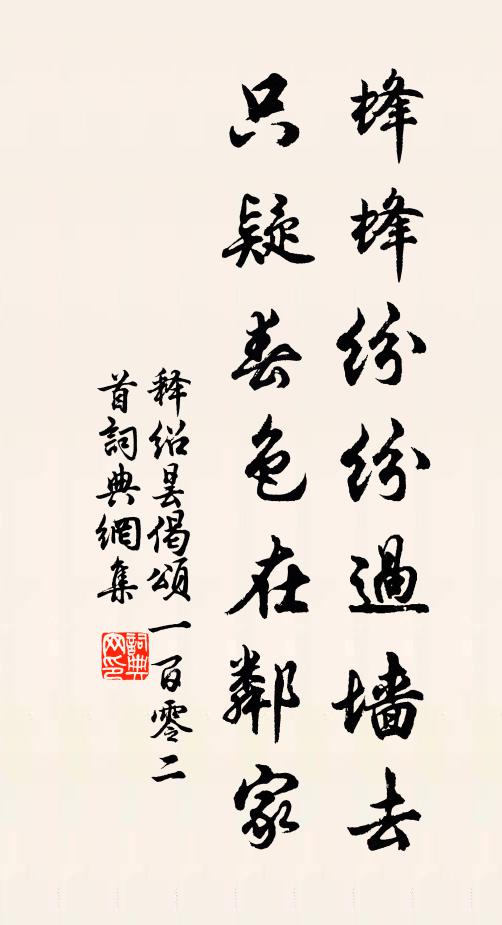 蜂蜂纷纷過墙去
只疑春色在鄰家
释绍昙偈頌一百零二
首詞典網集
詞典
网印